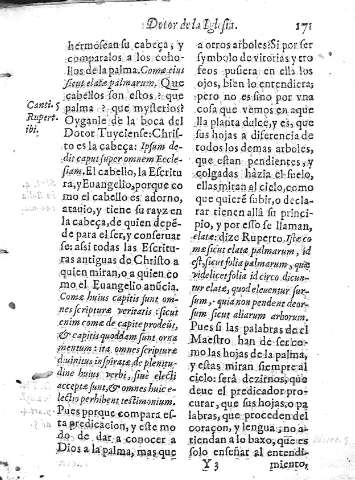 Dotor de la Iglesia. 171
hermosean su cabeça, y
comparalos a los coho-
llos de la palma. Comæ eius
sicut elatæ palmarum. Que
cabellos son estos? que
palma? que mysterios?
Oyganle de la boca del
Dotor Tuyciense: Chris-
to es la cabeça: Ipsum de-
dit caput super omnem Eccle-
siam. El cabello, la Escritu
ra, y Euangelio, porque co
mo el cabello es adorno,
atauio, y tiene su rayz en
la cabeça, de quien depē-
de para el ser, y conseruar
se: assi todas las Escritu-
ras antiguas de Christo a
quien miran, o a quien co
mo el Euangelio anūcia.
Comæ huius capitis sunt om-
nes scripturæ veritatis: sicut
enim comæ de capite prodeūt,
& capitis quoddam sunt orna
mentum: ita omnes scripturæ
diuinitus inspiratæ de plenitu-
dine huius verbi, siue electi
acceptæ sunt, & omnes huic e-
lectio perhibent testimonium.
Pues porque compara es-
ta predicacion, y este mo
do de dar a conocer a
Dios a la palma, mas que
Canti. 5
Rupert-
ibi.
a otros arboles? Si por ser
symbolo de vitorias y tro
feos pusiera en ella los
ojos, bien lo entendiera;
pero no es sino por vna
cosa que vemos en aque
lla planta dulce, y es, que
sus hojas a diferencia de
todos los demas arboles,
que estan pendientes, y
colgadas hàzia el suelo,
ellas miran al cielo, como
que quierē subir, o decla-
rar tienen allà su princi-
pio, y por esso se llaman,
elatæ: dize Ruperto. Istæ co
mæ sicut elatæ palmarum, id
est, sicut folia palmarum, quę
videlicet folia id circo dicun-
tur elatæ, quod eleuentur sur-
sum, quia non pendent deor-
sum sicut aliarum arborum.
Pues si las palabras de el
Maestro han de ser co-
mo las hojas de la palma,
y estas miran siempre al
cielo: serà dezirnos, que
deue el predicador pro-
curar, que sus hojas, o pa
labras, que proceden del
coraçon, y lengua, no a-
tiendan a lo baxo, que es
solo enseñar al entendi-
Y 3 miento,